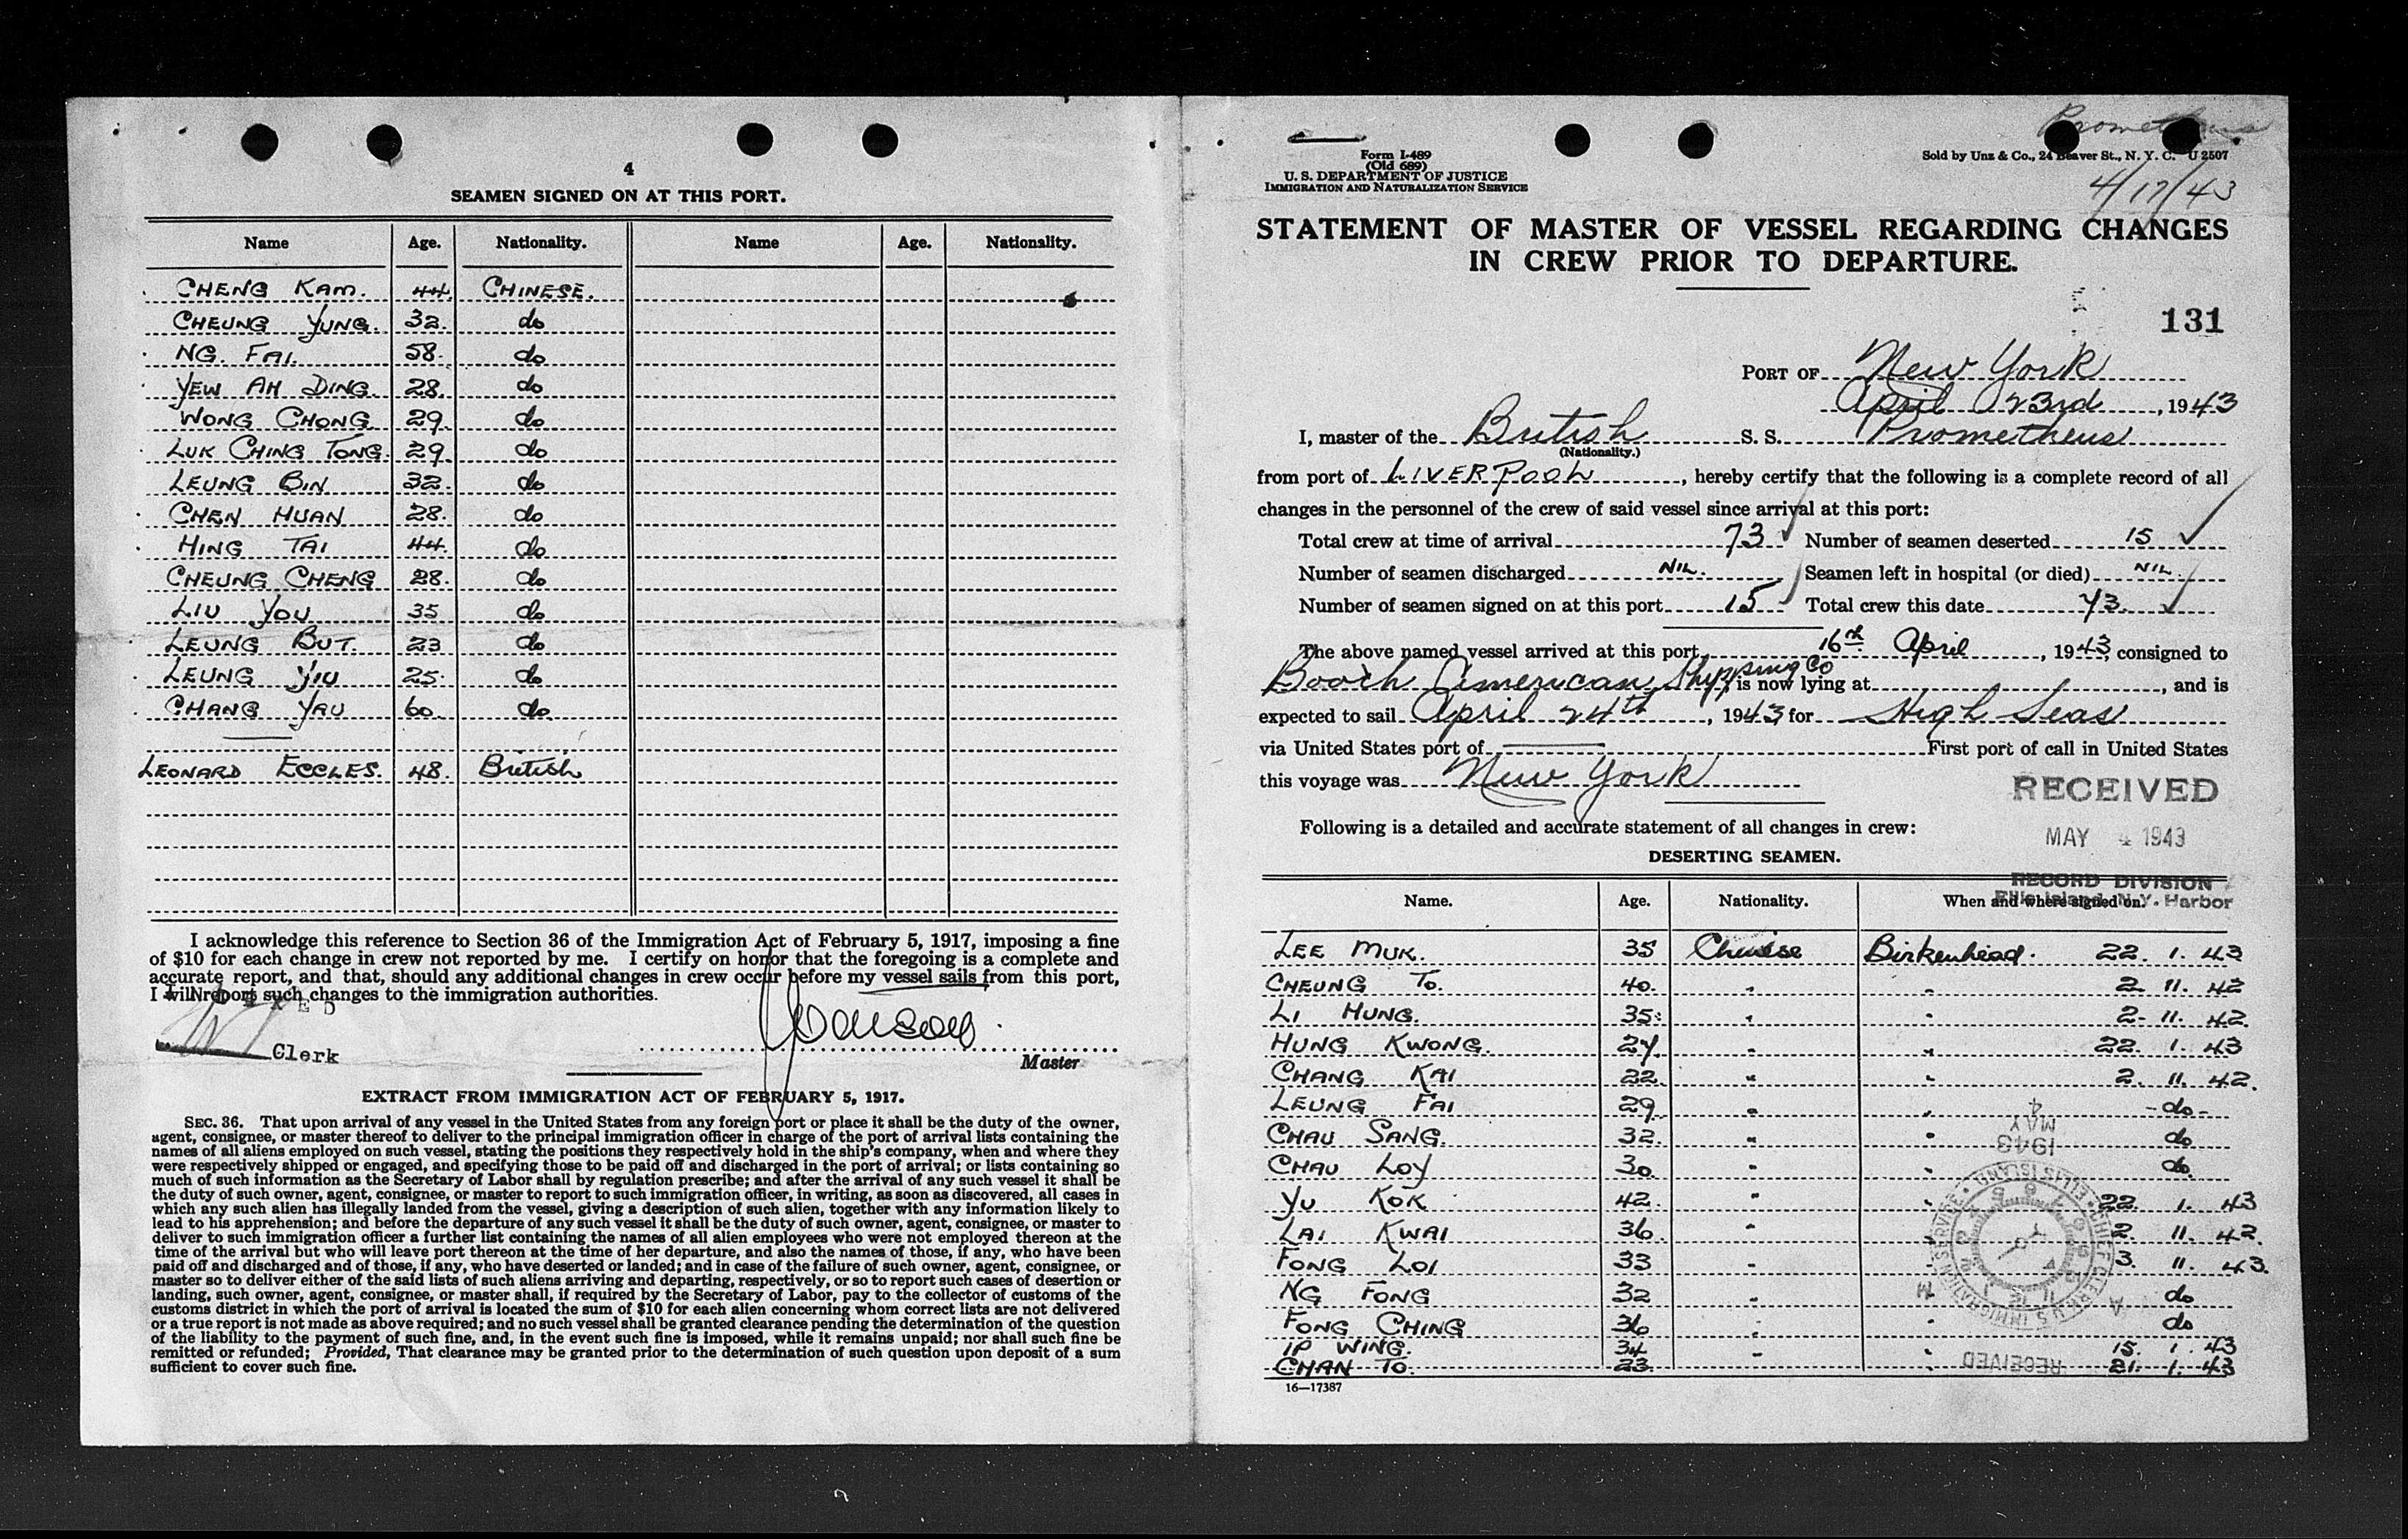 4
SEAMEN SIGNED ON AT THIS PORT.
Name Age. Nationality. Name Age. Nationality.
CHENG KAM. 44. CHINESE.
CHEUNG YUNG. 32. do
NG. FAI. 58. do
YEW AH DING. 28. do
WONG CHONG. 29. do
LUK CHING TONG. 29. do
LEUNG BIN 32. do
CHEN HUAN 28. do
HING TAI 44. do
CHEUNG CHENG 28. do
LIU YOU 35 do
LEUNG BUT. 23 do
LEUNG YIU 25. do
CHANG YAU 60. do.
LEONARD ECCLES. 48. British
I acknowledge this reference to Section 36 of the Immigration Act of February 5, 1917, imposing a fine
of $10 for each change in crew not reported by me. I certify on honor that the foregoing is a complete and
accurate report, and that, should any additional changes in crew occur before my vessel sails from this port,
I will report such changes to the immigration authorities.
Clerk
Master
EXTRACT FROM IMMIGRATION ACT OF FEBRUARY 5, 1917.
SEC. 36. That upon arrival of any vessel in the United States from any foreign port or place it shall be the duty of the owner,
agent, consignee, or master thereof to deliver to the principal immigration officer in charge of the port of arrival lists containing the
names of all aliens employed on such vessel, stating the positions they respectively hold in the ship's company, when and where they
were respectively shipped or engaged, and specifying those to be paid off and discharged in the port of arrival; or lists containing so
much of such information as the Secretary of Labor shall by regulation prescribe; and after the arrival of any such vessel it shall be
the duty of such owner, agent, consignee, or master to report to such immigration officer, in writing, as soon as discovered, all cases in
which any such alien has illegally landed from the vessel, giving a description of such alien, together with any information likely to
lead to his apprehension; and before the departure of any such vessel it shall be the duty of such owner, agent, consignee, or master to
deliver to such immigration officer a further list containing the names of all alien employees who were not employed thereon at the
time of the arrival but who will leave port thereon at the time of her departure, and also the names of those, if any, who have been
paid off and discharged and of those, if any, who have deserted or landed; and in case of the failure of such owner, agent, consignee, or
master so to deliver either of the said lists of such aliens arriving and departing, respectively, or so to report such cases of desertion or
landing, such owner, agent, consignee, or master shall, if required by the Secretary of Labor, pay to the collector of customs of the
customs district in which the port of arrival is located the sum of $10 for each alien concerning whom correct lists are not delivered
or a true report is not made as above required; and no such vessel shall be granted clearance pending the determination of the question
of the liability to the payment of such fine, and, in the event such fine is imposed, while it remains unpaid; nor shall such fine be
remitted or refunded; Provided, That clearance may be granted prior to the determination of such question upon deposit of a sum
sufficient to cover such fine.
Prometheus
Form I-489
(Old 689)
U. S. DEPARTMENT OF JUSTICE
IMMIGRATION AND NATURALIZATION SERVICE
Sold by Unz & Co., 24 Beaver St., N. Y. C. U 2507
4/17/43
STATEMENT OF MASTER OF VESSEL REGARDING CHANGES
IN CREW PRIOR TO DEPARTURE.
131
PORT OF New York
April 23rd, 1943
I, master of the British S. S. Prometheus
(Nationality.)
from port of LIVERPOOL, hereby certify that the following is a complete record of all
changes in the personnel of the crew of said vessel since arrival at this port:
Total crew at time of arrival 73 Number of seamen deserted 15
Number of seamen discharged NIL. Seamen left in hospital (or died) NIL.
Number of seamen signed on at this port 15 Total crew this date 73.
The above named vessel arrived at this port 16th April, 1943, consigned to
Booth American Shipping Co, is now lying at, and is
expected to sail April 24th, 1943 for High Seas
via United States port of First port of call in United States
this voyage was New York
RECEIVED
MAY 4 1943
RECORD DIVISION
Ellis Island, N.Y. Harbor
Following is a detailed and accurate statement of all changes in crew:
DESERTING SEAMEN.
Name. Age. Nationality. When and where signed on.
LEE MUK. 35 Chinese Birkenhead. 22. 1. 43
CHEUNG To. 40. " " 2. 11. 42
LI HUNG. 35. " " 2- 11. 42.
HUNG KWONG. 27. " " 22. 1. 43
CHANG KAI 22. " " 2. 11. 42.
LEUNG FAI 29. " " -do-
CHAU SANG. 32. " " do
CHAU LOY 30. " " do.
YU KOK 42. " " 22. 1. 43
LAI KWAI 36. " " 2. 11. 42.
FONG LOI 33 " " 3. 11. 43.
NG FONG 32 " " do
FONG CHING 36 " " do
IP WING. 34 " " 15. 1. 43
CHAN TO. 23. " " 21. 1. 43
MAY 4 1943
RECEIVED
16—17387